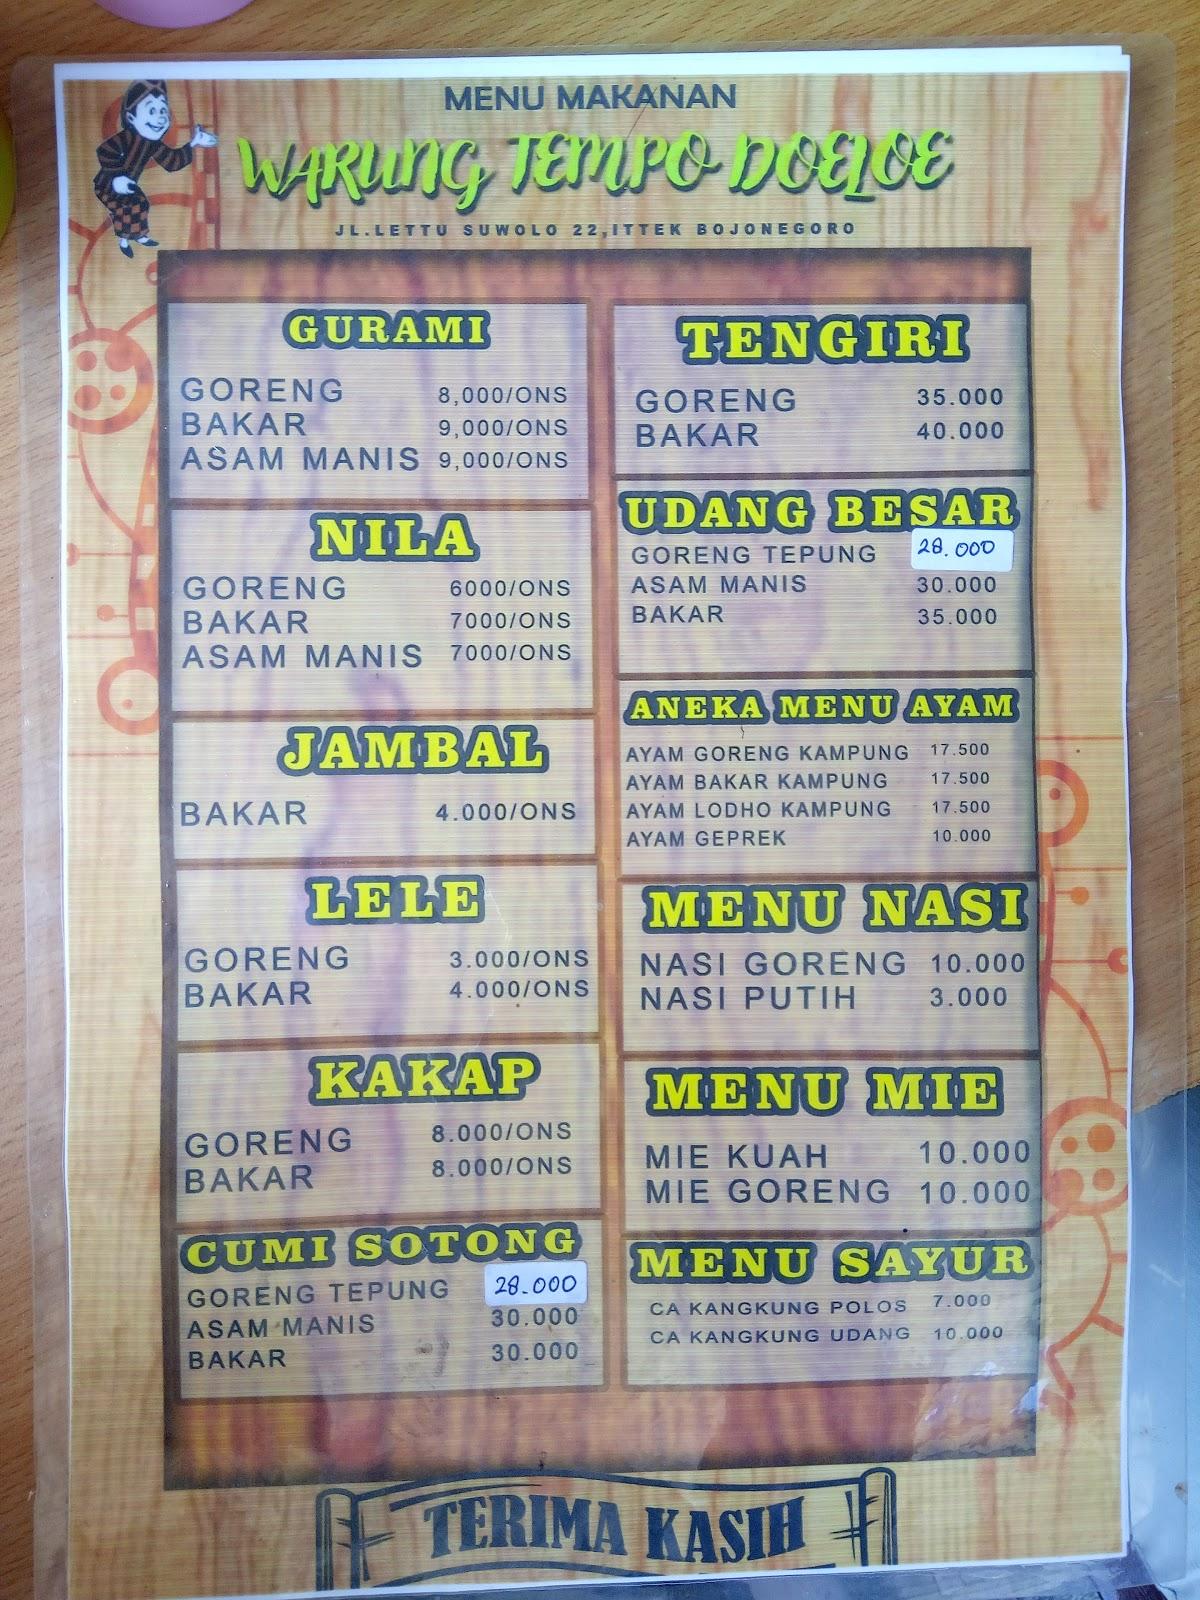 MENU MAKANAN
WARUNG TEMPO DOELOE
JL.LETTU SUWOLO 22,ITTEK BOJONEGORO
GURAMI
GORENG 8,000/ONS
BAKAR 9,000/ONS
ASAM MANIS 9,000/ONS
NILA
GORENG 6000/ONS
BAKAR 7000/ONS
ASAM MANIS 7000/ONS
JAMBAL
BAKAR 4.000/ONS
LELE
GORENG 3.000/ONS
BAKAR 4.000/ONS
KAKAP
GORENG 8.000/ONS
BAKAR 8.000/ONS
CUMI SOTONG
GORENG TEPUNG 28.000
ASAM MANIS 30.000
BAKAR 30.000
TENGIRI
GORENG 35.000
BAKAR 40.000
UDANG BESAR
GORENG TEPUNG 28.000
ASAM MANIS 30.000
BAKAR 35.000
ANEKA MENU AYAM
AYAM GORENG KAMPUNG 17.500
AYAM BAKAR KAMPUNG 17.500
AYAM LODHO KAMPUNG 17.500
AYAM GEPREK 10.000
MENU NASI
NASI GORENG 10.000
NASI PUTIH 3.000
MENU MIE
MIE KUAH 10.000
MIE GORENG 10.000
MENU SAYUR
CA KANGKUNG POLOS 7.000
CA KANGKUNG UDANG 10.000
TERIMA KASIH